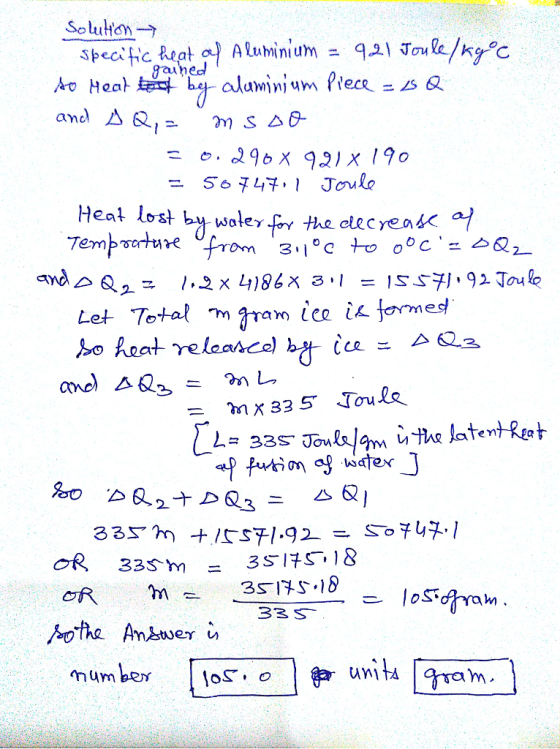 Solution →
specific heat of Aluminium = 921 Joule/kg°C
gained
so Heat lost by aluminium Piece = ΔQ
and ΔQ₁ = m s Δθ
= 0.290 x 921 x 190
= 50747.1 Joule
Heat lost by water for the decrease of
Temprature from 3.1°C to 0°C = ΔQ₂
and ΔQ₂ = 1.2 x 4186 x 3.1 = 15571.92 Joule
Let Total m gram ice is formed
So heat released by ice = ΔQ₃
and ΔQ₃ = mL
= m x 335 Joule
[L = 335 Joule/gm is the latent heat
of fusion of water]
So ΔQ₂ + ΔQ₃ = ΔQ₁
335 m + 15571.92 = 50747.1
OR 335 m = 35175.18
OR m = 35175.18 / 335 = 105.0 gram.
So the Answer is
number 105.0 units gram.